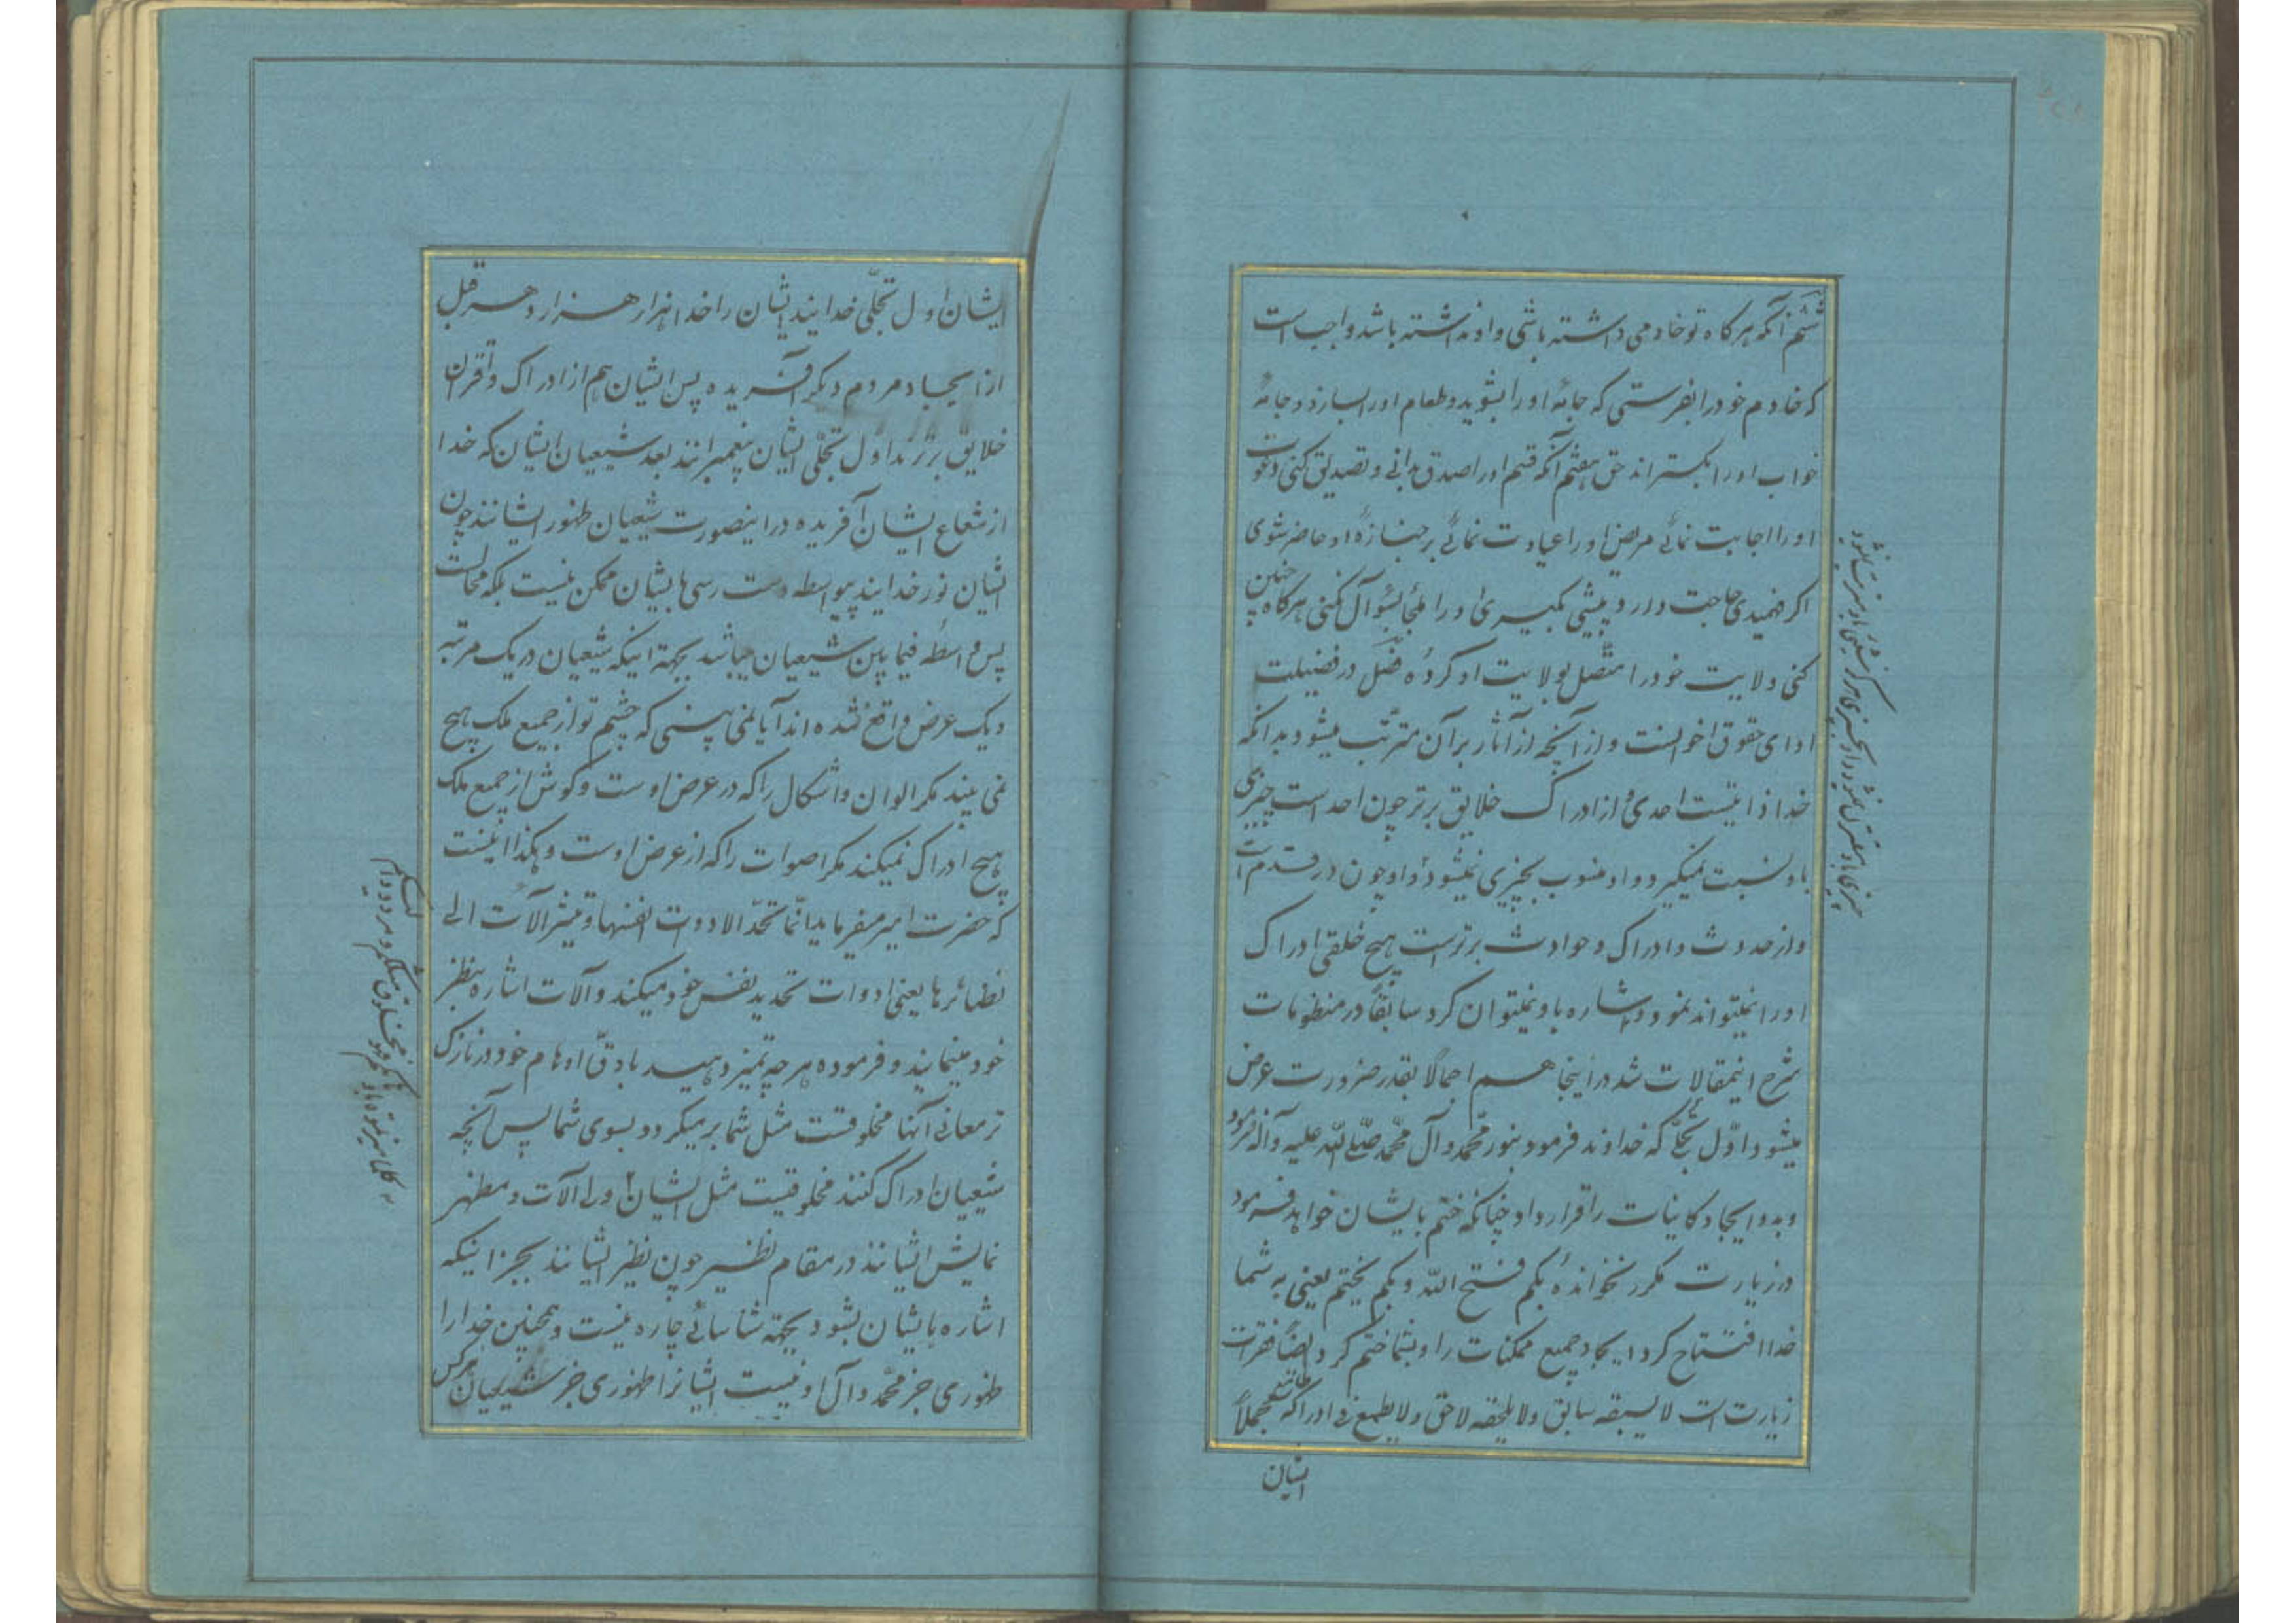 ششم آنکه هرگاه تو خادمی داشته باشی و او نداشته باشد واجب است
که خادم خود را بفرستی که جامهٔ او را بشوید و طعام او را بسازد و جامهٔ
خواب او را بگستراند حق هفتم آنکه قسم او را صدق بدانی و تصدیق کنی دعوت
او را اجابت نمائی مریض او را عیادت نمائی بر جنازهٔ او حاضر شوی
اگر فهمیدی حاجت دارد پیشی بگیری او را ملجأ بسؤال نکنی هرگاه چنین
کنی ولایت خود را متصل بولایت او کردهٔ فصل در فضیلت
ادای حقوق اخوانست و از آنچه از آثار بر آن مترتب میشود بدانکه
خدا ذاتیست احدی و از ادراک خلایق برتر چون احد است چیزی
باو نسبت نمیگیرد و او منسوب بچیزی نمیشود و او چون در قدم است
و از حدوث و ادراک و حوادث برتر است هیچ خلقی ادراک
او را نمیتواند نمود و اشاره باو نمیتوان کرد سابقاً در منظومات
شرح اینمقالات شد در اینجا هم اجمالاً بقدر ضرورت عرض
میشود اوّل تجلّی که خداوند فرمود بنور محمّد و آل محمّد صلی الله علیه و آله فرمود
و بدو ایجاد کاینات را قرار داد چنانکه ختم بایشان خواهد فرمود
در زیارت مکرر نخواندهٔ بکم فتح الله و بکم یختم یعنی به شما
خدا افتتاح کرد ایجاد جمیع ممکنات را و بشما ختم کرد ایضاً فقرات
زیارت است لا یسبقه سابق و لا یلحقه لاحق و لا یطمع فی ادراکه طامع مجملاً
ایشان
ایشان اول تجلّی خدایند ایشان را خدا هزار هزار دهر قبل
از ایجاد مردم دیگر آفریده پس ایشان هم از ادراک و اقران
خلایق برترند اوّل تجلّی ایشان پیغمبرانند بعد شیعیان ایشان که خدا
از شعاع ایشان آفریده در اینصورت شیعیان ظهور ایشانند چون
ایشان نور خدایند بیواسطه دست رسی بایشان ممکن نیست بلکه محالست
پس واسطه فیمابین شیعیان میباشند بجهة اینکه شیعیان در یک مرتبه
و یک عرض واقع شده اند آیا نمی بینی که چشم تو از جمیع ملک هیچ
نمی بیند مگر الوان و اشکال را که در عرض اوست و گوش از جمیع ملک
هیچ ادراک نمیکند مگر اصوات را که از عرض اوست و هکذا اینست
که حضرت امیر میفرماید انّما تحدّ الادوات انفسها و تشیر الآلات الی
نظائرها یعنی ادوات تحدید نفس خود میکند و آلات اشاره بنظیر
خود مینمایند و فرموده هرچه تمیز دهید بادقّ اوهام خود در نازک
تر معانی آنها مخلوقست مثل شما بر میگردد بسوی شما پس آنچه
شیعیان ادراک کنند مخلوقیست مثل ایشان و را آلات و مظهر
نمایش ایشانند در مقام نظیر چون نظیر ایشانند بجز اینکه
اشاره بایشان بشود بجهة شناسائی چاره نیست و همچنین خدا را
ظهوری جز محمّد و آل او نیست ایشانرا ظهوری جز شیعیان هرکس
کلما میزتموه باوهامکم مخلوق مثلکم مردود الیکم